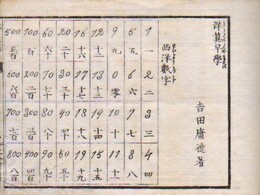 洋算早學
吉田庸徳著
西洋數字
1 一 2 二 3 三 4 四
5 五 6 六 7 七 8 八
9 九 0 零 10 十 11 十一
12 十二 13 十三 14 十四 15 十五
16 十六 17 十七 18 十八 19 十九
20 二十 30 三十 40 四十 50 五十
60 六十 70 七十 80 八十 90 九十
100 百 200 二百 300 三百 400 四百
500 五百 六百 700 七百 800 八百